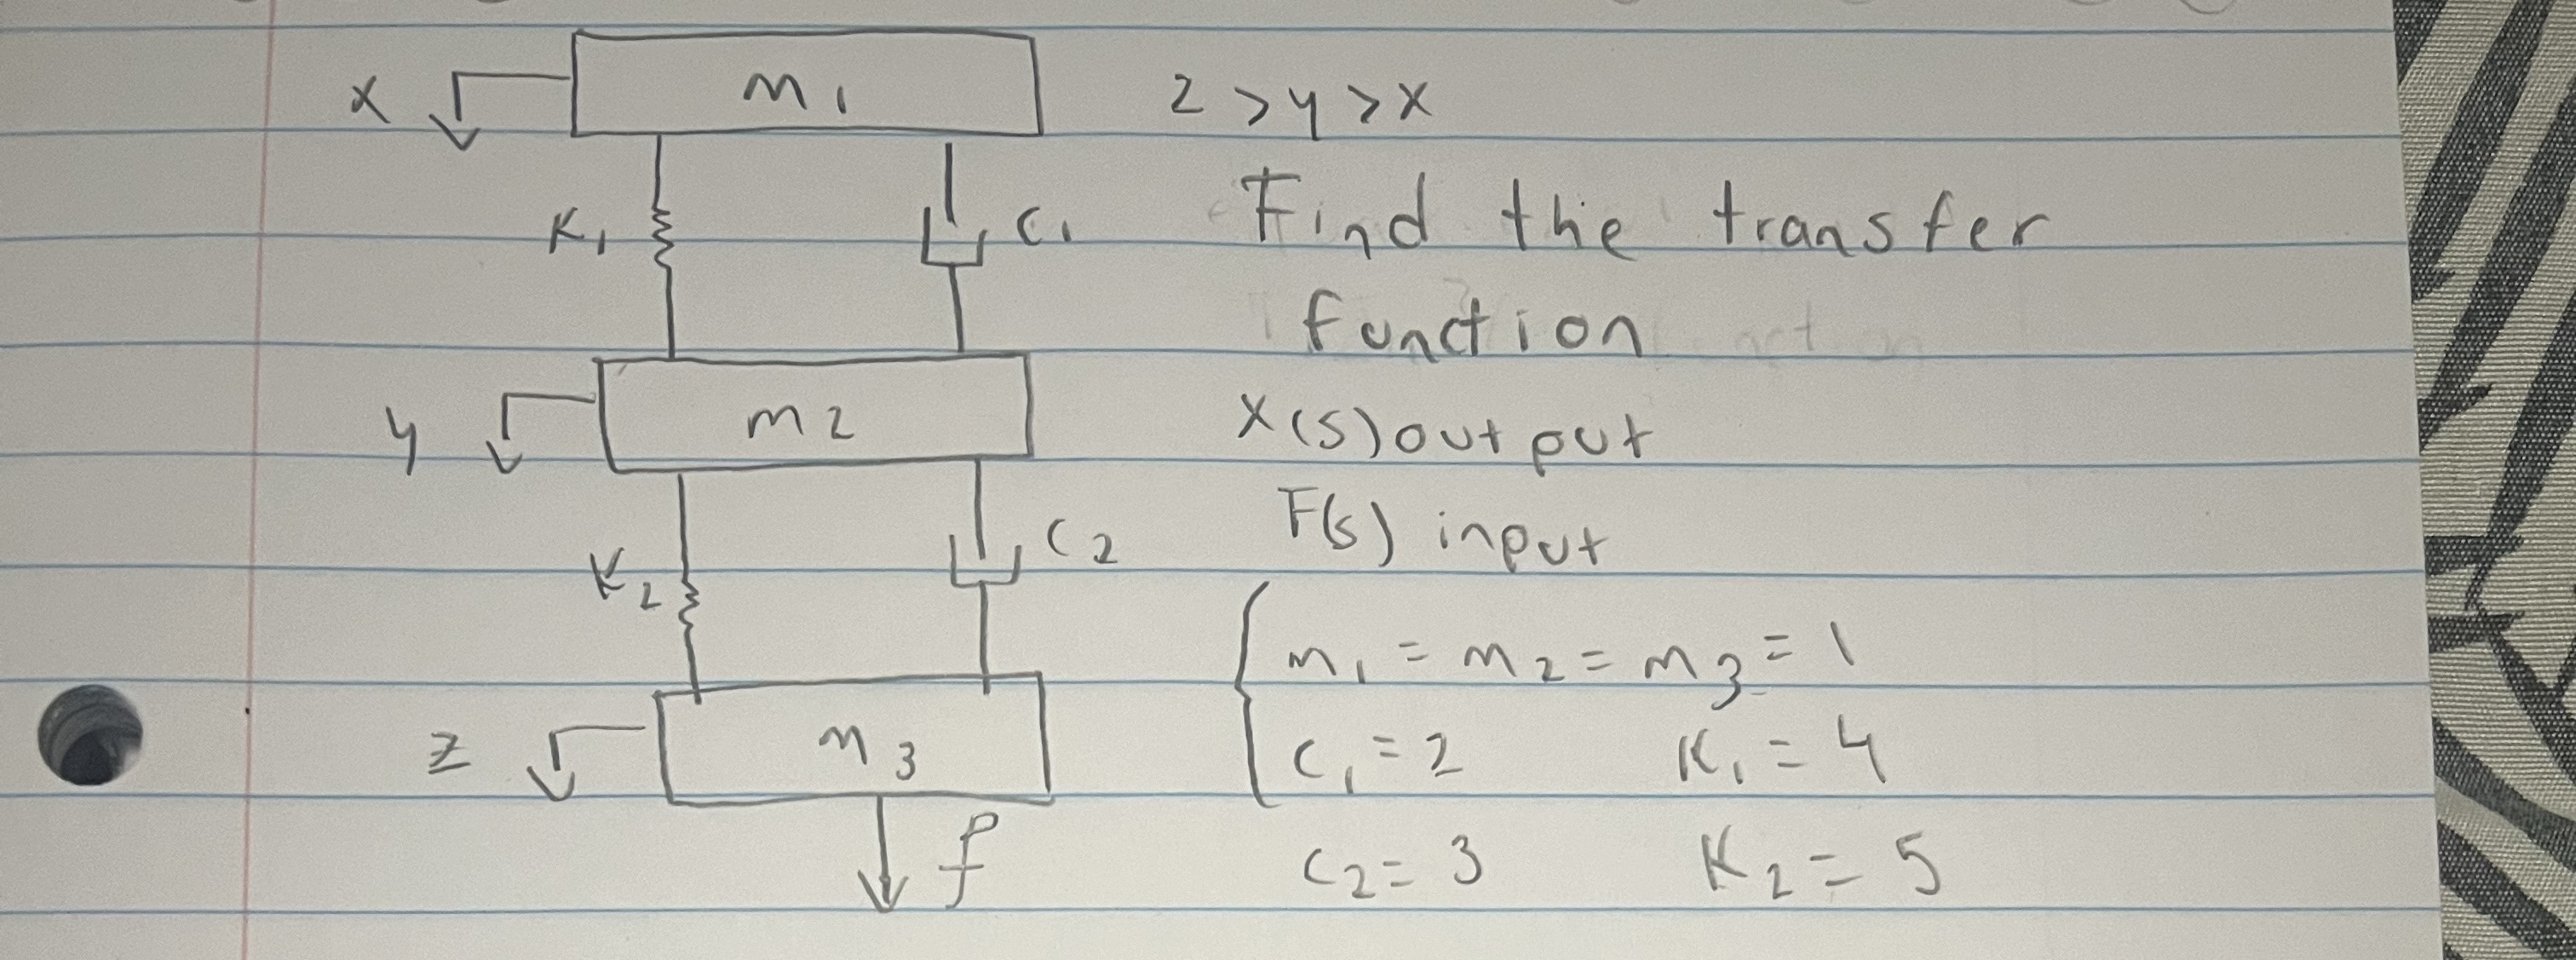 x m1 z > y > x
K1 C1 Find the transfer
function
y m2 X(s) output
K2 C2 F(s) input
m1 = m2 = m3 = 1
z m3 C1 = 2 K1 = 4
f C2 = 3 K2 = 5